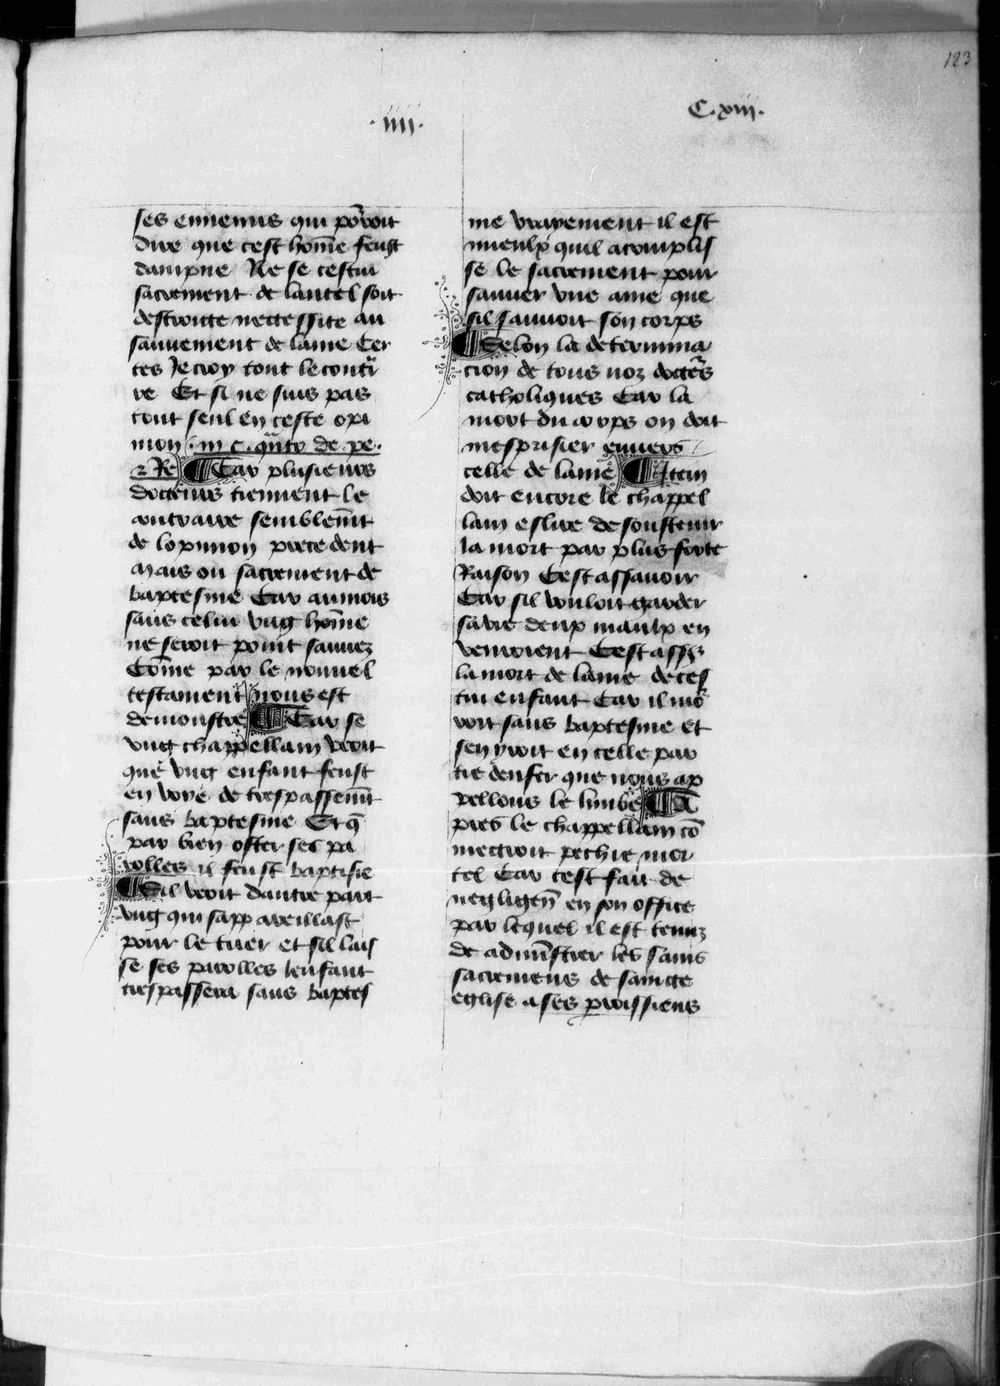 123
.iiii.
C.xiii.
ses ennemis qui po᷑roit
dire que cest hom̄e feust
dampne Ne se cestui
sacrement de lautel soit
destroitte neccessite au
sauuement de lame Cer
tes Je croy tout le contᷓi
re Et si ne suis pas
tout seul en ceste opi
nion
¶ Car plusieurs
docteurs tiennent le
contraire semblem̄t
de lopinion precedent
Mais ou sacrement de
baptesme Car au mois
sans celui vng hom̄e
ne seroit point sauuez
Com̄e par le nouuel
testament nous est
demonstre ¶ Car se
vng chappellain veoit
que vng enfant feust
en voye de trespassem̄t
sans baptesme Et q̄
par bien oster ses pa
rolles il feust baptisie
¶ Sil veoit dautre part
vng qui sapp areillast
pour le tuer et sil lais
se ses parolles lenfant
trespassera sans baptes
me vrayement il est
mieulx quil acomplis
se le sacrement pour
sauuer vne ame que
sil sauuoit son corps
¶ Selon la determina
cion de tous noz doctēs
catholiques Car la
mort du corps on doit
mesprisier enuers
celle de lame ¶ Item
doit encore le chappel
lain eslire de soustenir
la mort par plus forte
Raison Cest assauoir
Car sil vouloit garder
sa vie deux maulx en
venroient Cest asss
la mort de lame de ces
tui enfant Car il mo᷑
roit sans baptesme Et
sen yroit en celle par
tie denfer que nous ap
pellons le limbe ¶ A
pres le chappellain cō
mectroit pechie mor
tel Car cest fait de
negligen̄ en son office
par lequel il est tenuz
de admīstrer les sains
sacremens de saincte
eglise a ses proissiens